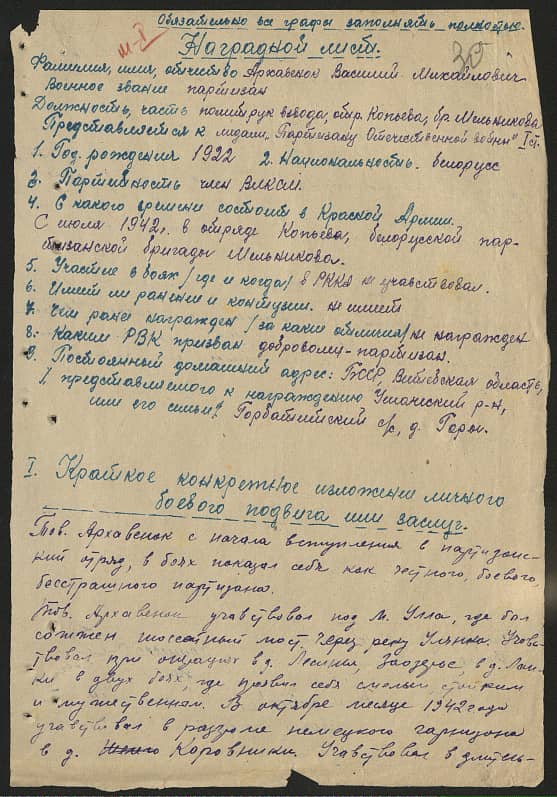 Обязательно все графы заполнять полностью.
30
Наградной лист.
Фамилия, имя, отчество Архавенок Василий Михайлович
Военное звание партизан
Должность, часть политрук взвода, отр. Копьева, бр. Мельникова
Представляется к медали „Партизану Отечественной войны" I ст.
1. Год рождения 1922 2. Национальность. белорусс
3. Партийность член ВЛКСМ
4. С какого времени состоит в Красной Армии.
С июля 1942г. в отряде Копьева, белорусской пар-
тизанской бригады Мельникова.
5. Участие в боях /где и когда/ в РККА не учавствовал.
6. Имеет ли ранения и контузии. не имеет
7. Чем ранее награжден /за какие отличия/ не награжден
8. Каким РВК призван доброволец-партизан.
9. Постоянный домашний адрес: БССР, Витебская область,
/представляемого к награждению Ушачский р-н,
или его семьи/. с/с, д. Горы.
I. Краткое конкретное изложение личного
боевого подвига или заслуг.
Тов. Архавенок с начала вступления в партизанс-
кий отряд, в боях показал себя как честного, боевого,
бесстрашного партизана.
Тов. Архавенок учавствовал под м. Улла, где был
сожжен шоссейный мост через реку Улянка. Учавс-
твовал при операциях в д. Заозерье, в д.
ки в двух боях, где проявил себя смелым стойким
и мужественным. В октябре месяце 1942 года
учавствовал в разгроме немецкого гарнизона
в д. Коровники. Учавствовал в длитель-